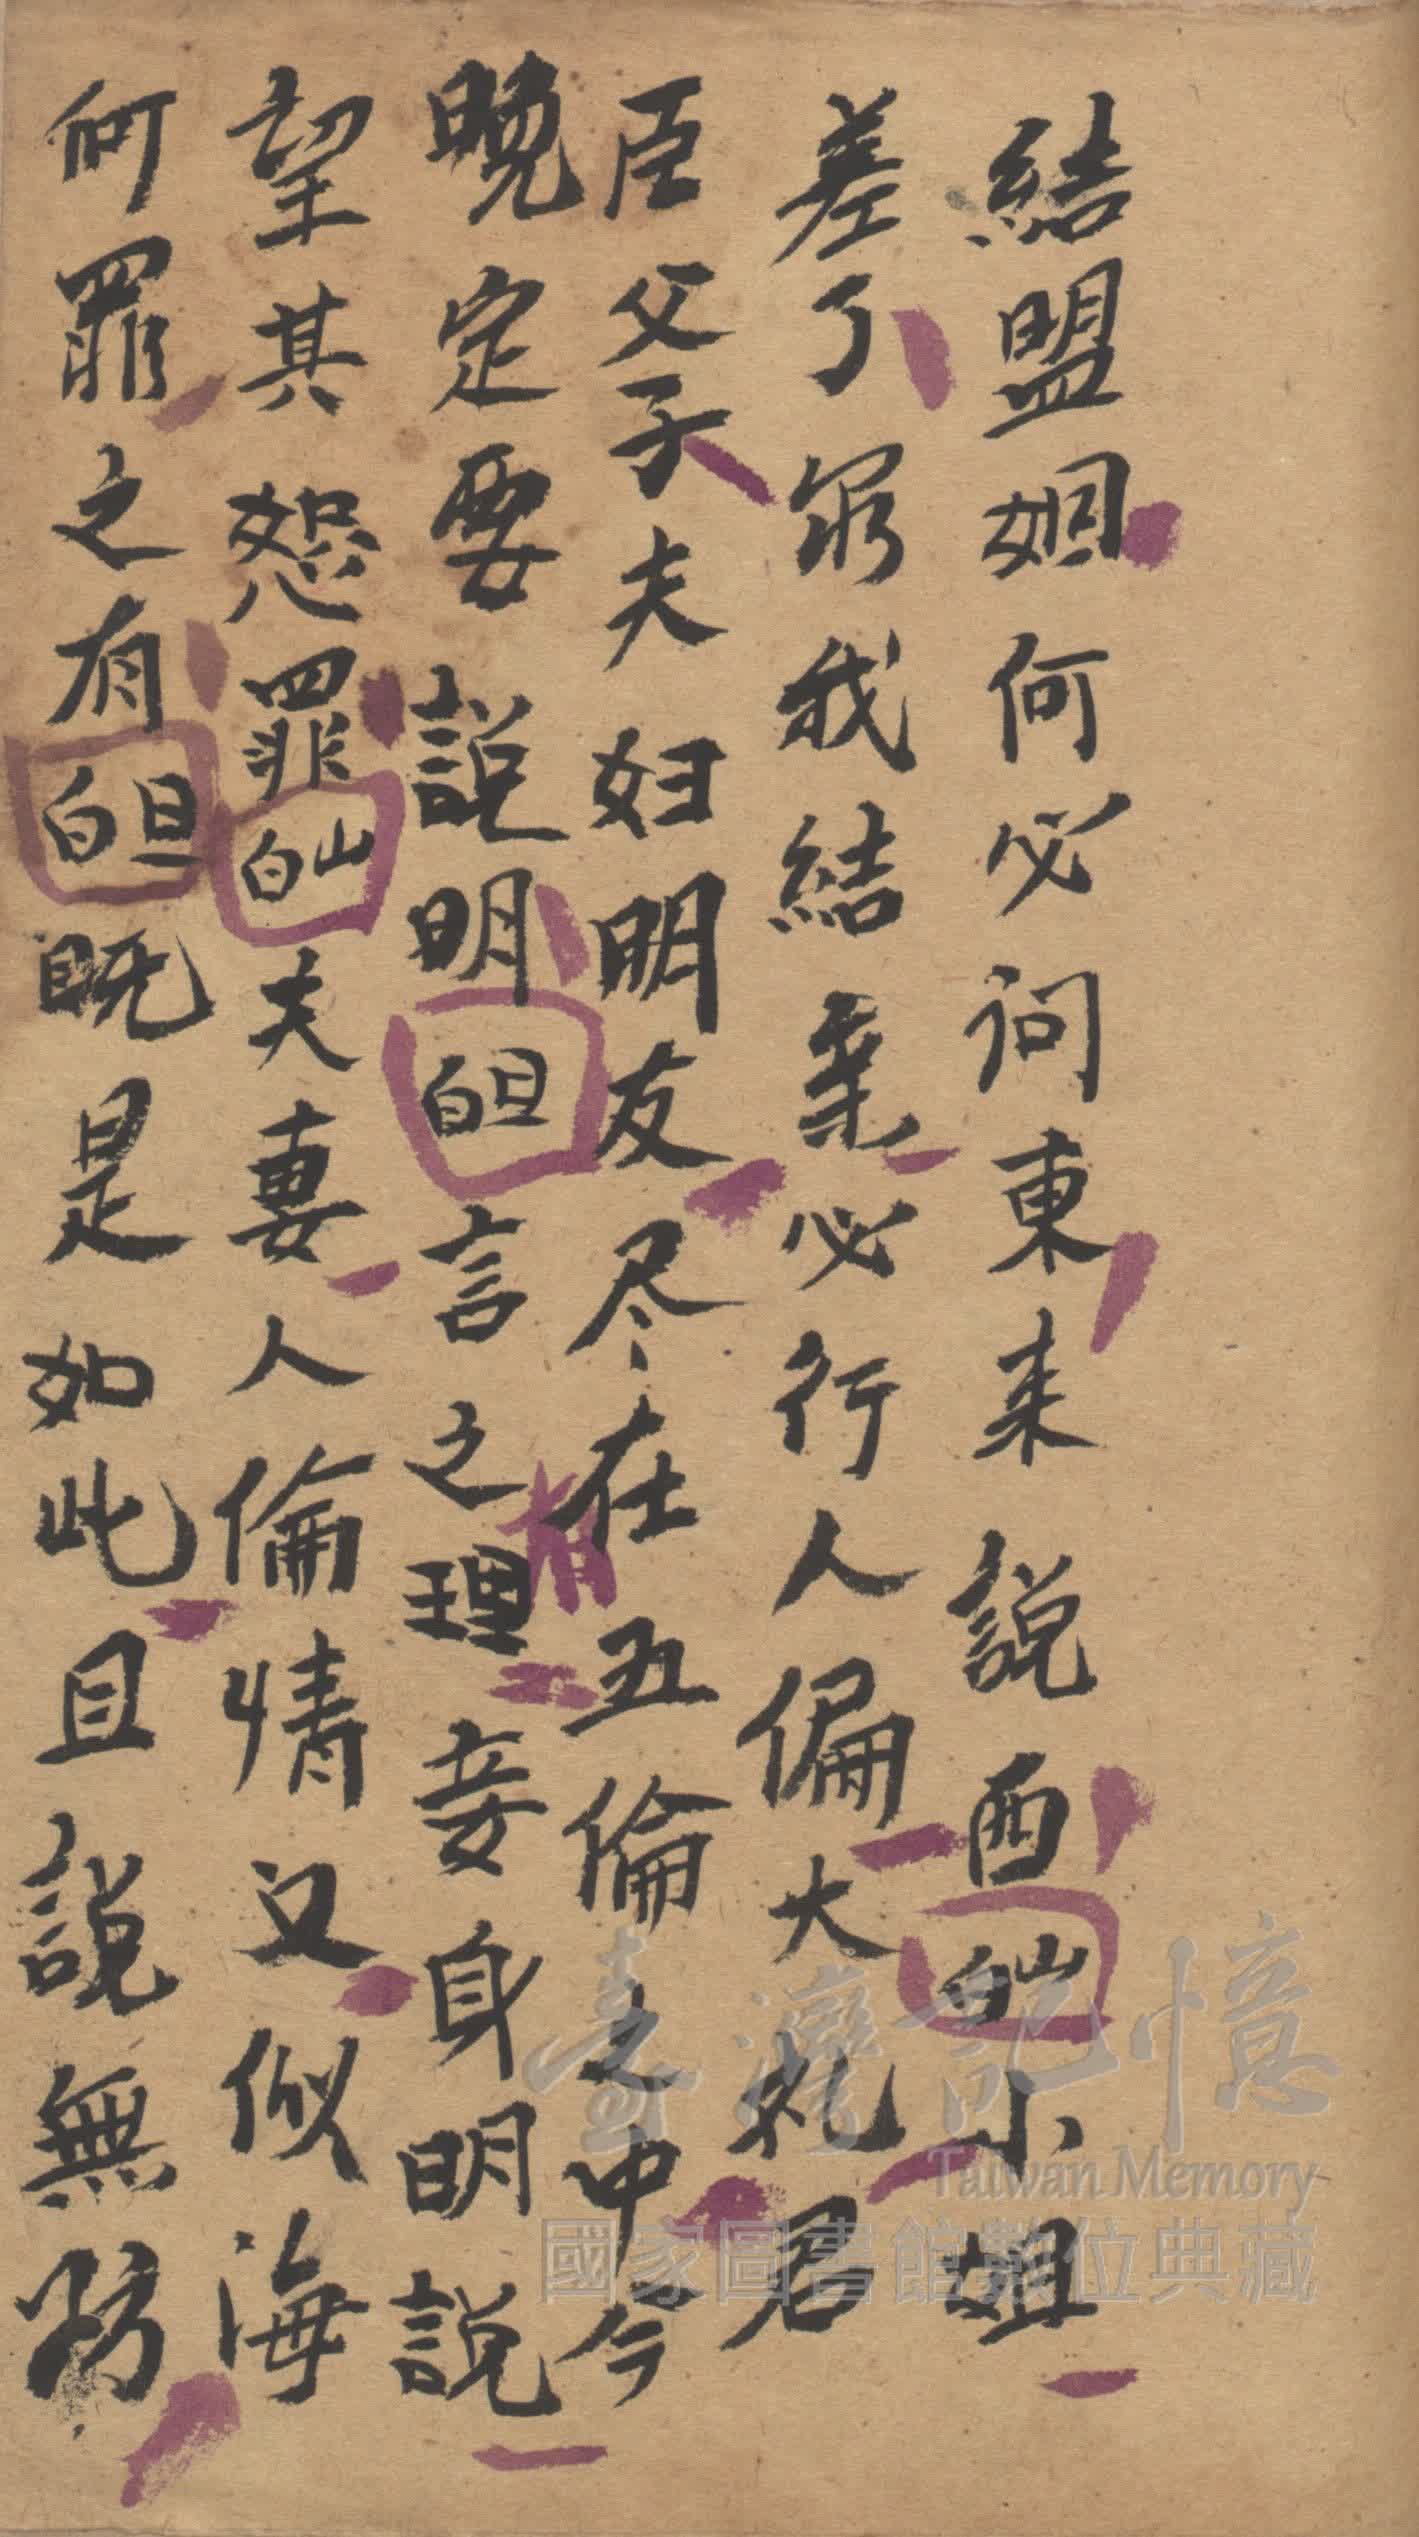 結盟姐何必问東来說西白山小姐
差了窮我結辜必行人偏大礼君
臣父子夫妇明友尽在五倫之中今
晚定要說明白旦言之理有妾身明說
望其恕罪白山夫妻人倫情义似海
何罪之有白旦既是如此且說無妨
臺灣記憶
Taiwan Memory
國家圖書館數位典藏